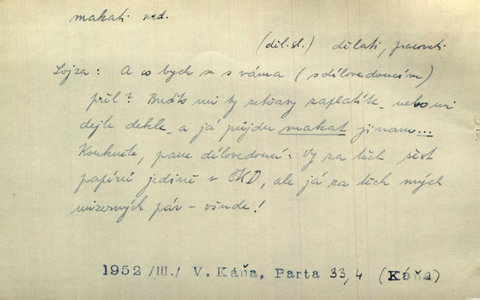 makati ned.
(děl.sl.) dělati, pracovati
Lojza: A co bych se s váma (s dílovedoucím)
přel? Buďto mi ty ztráty zaplatíte, nebo mi
dejte dekle, a já půjdu makat jinam...
Koukněte, pane dílovedoucí: Vy za těch šest
papírů jedině v ČKD, ale já za těch mých
mizerných pár - všude!
1952 /III./ V. Káňa, Parta 33,4 (Káňa)